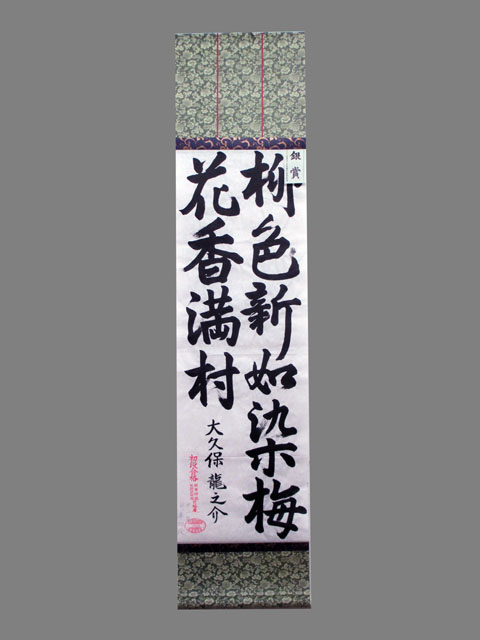 銀賞
柳色新如染梅
花香満村
大久保龍之介
初段合格